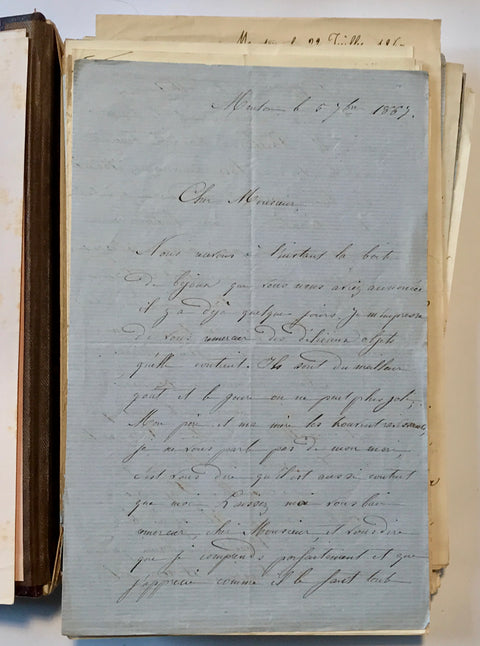 Menton le 22 Juillet 186
Menton le 5 7bre 1867.
Cher Monsieur,
Nous recevons à l'instant la boite
de bijoux que vous nous aviez annoncée
il y a déjà quelques jours. Je m'empresse
de vous remercier des délicieux objets
qu'elle contient. Ils sont du meilleur
goût et le genre on ne peut plus joli,
Mon père et ma mère les trouvent
je ne vous parle pas de mon mari,
c'est vous dire qu'il est aussi content
que moi. Laissez moi vous bien
remercier, cher Monsieur, et vous dire
que je comprends parfaitement et que
j'apprécie comme il le faut tout